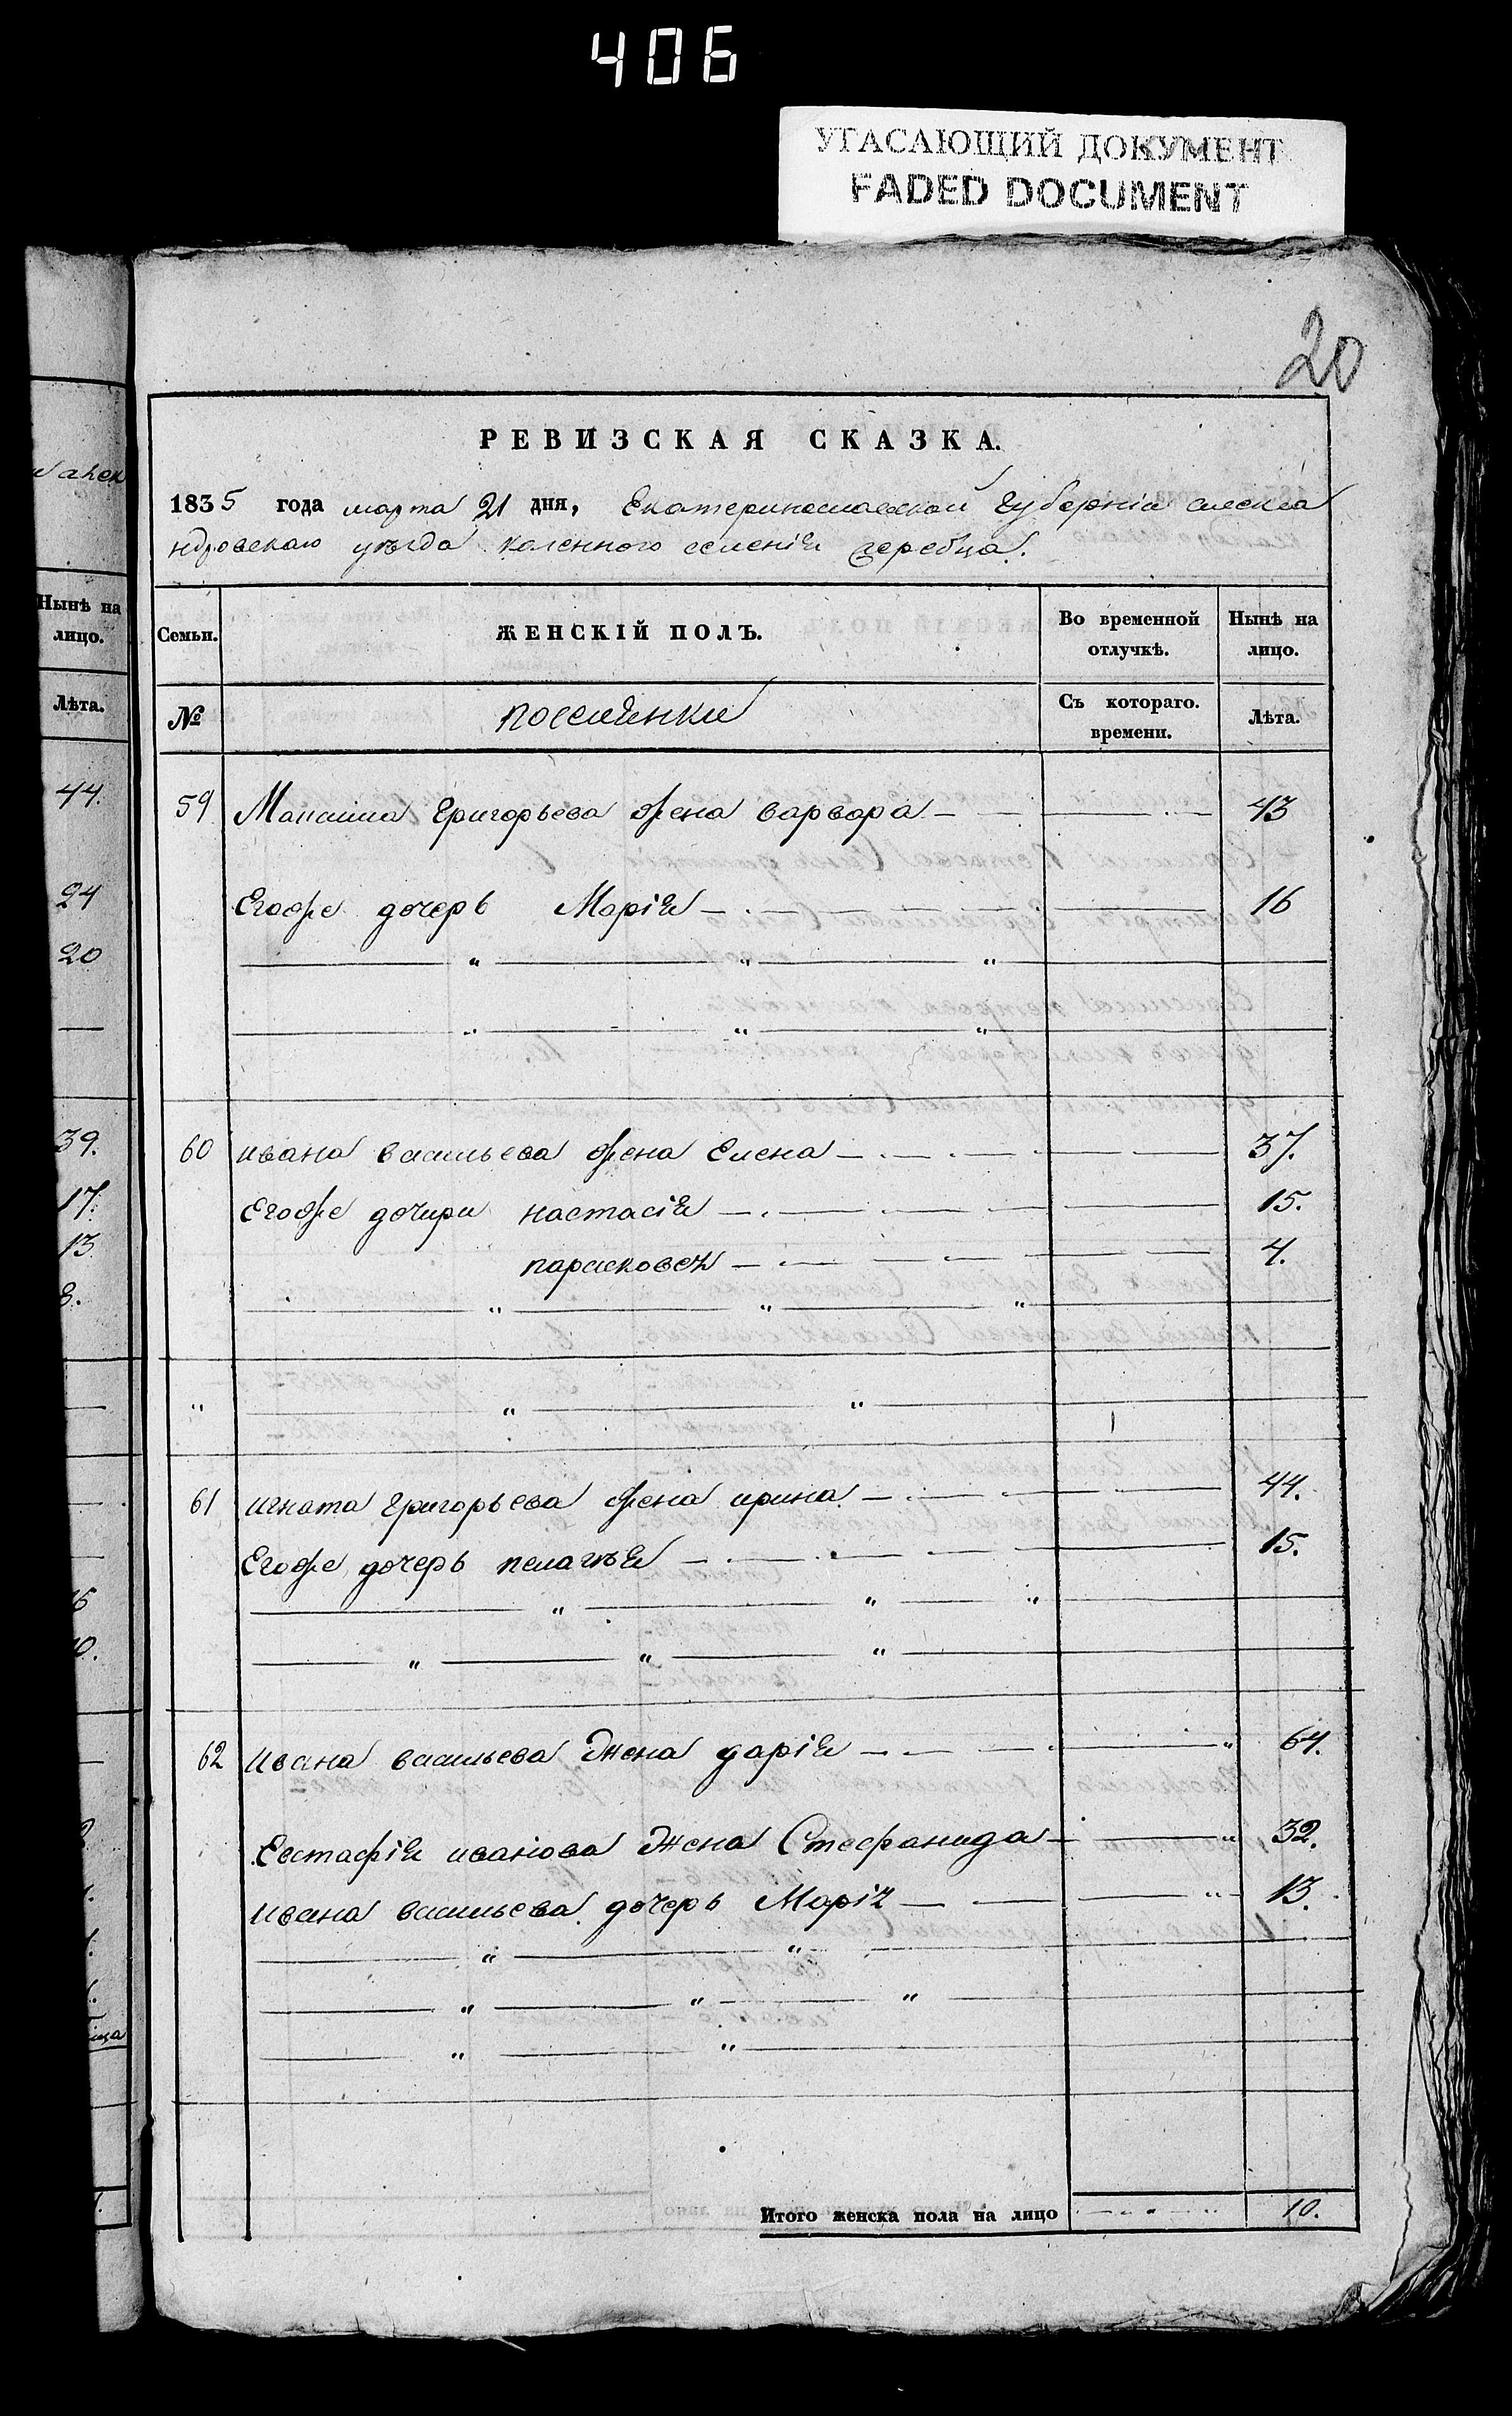 406
УГАСАЮЩИЙ ДОКУМЕНТ
FADED DOCUMENT
20
РЕВИЗСКАЯ СКАЗКА.
1835 года марта 21 дня, Екатеринославской Губерніи алекса
ндровскаго уѣзда казенного селенія жеребца.
Семьи. ЖЕНСКІЙ ПОЛЪ. Во временной отлучкѣ. Нынѣ на лицо.
№ поселянки Съ котораго. времени. Лѣта.
59 Максима Григорьева жена варвара 43
Егоже дочерь Марія 16
60 ивана васильева жена Елена 37.
Егоже дочири настасія 15.
парасковея 4.
61 игната Григорьева жена ирина 44.
Егоже дочерь пелагѣя 15.
62 ивана васильева жена дарія 64.
Евстафія иванова жена Стефанида 32.
ивана васильева дочерь Марія 13.
Итого женска пола на лицо 10.
Нынѣ на
лицо.
Лѣта.
44.
24
20
39.
17.
13
8.